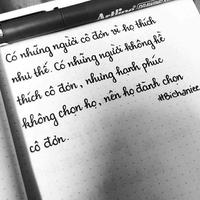 Artline
Có những người cô đơn vì họ thích
như thế. Có những người không hề
thích cô đơn, nhưng hạnh phúc
không chọn họ, nên họ đành chọn
cô đơn.
#Bichaniee